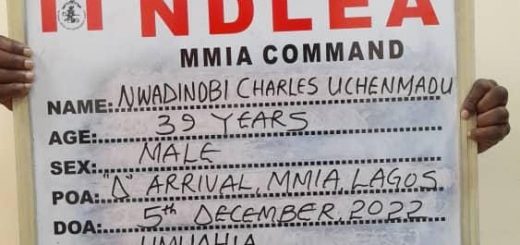 NDLEA
MMIA COMMAND
NAME: NWADINOBI CHARLES UCHENMADU
AGE: 39 YEARS
SEX: MALE
POA: "D" ARRIVAL, MMIA, LAGOS
DOA: 5th DECEMBER, 2022
UMUAHIA